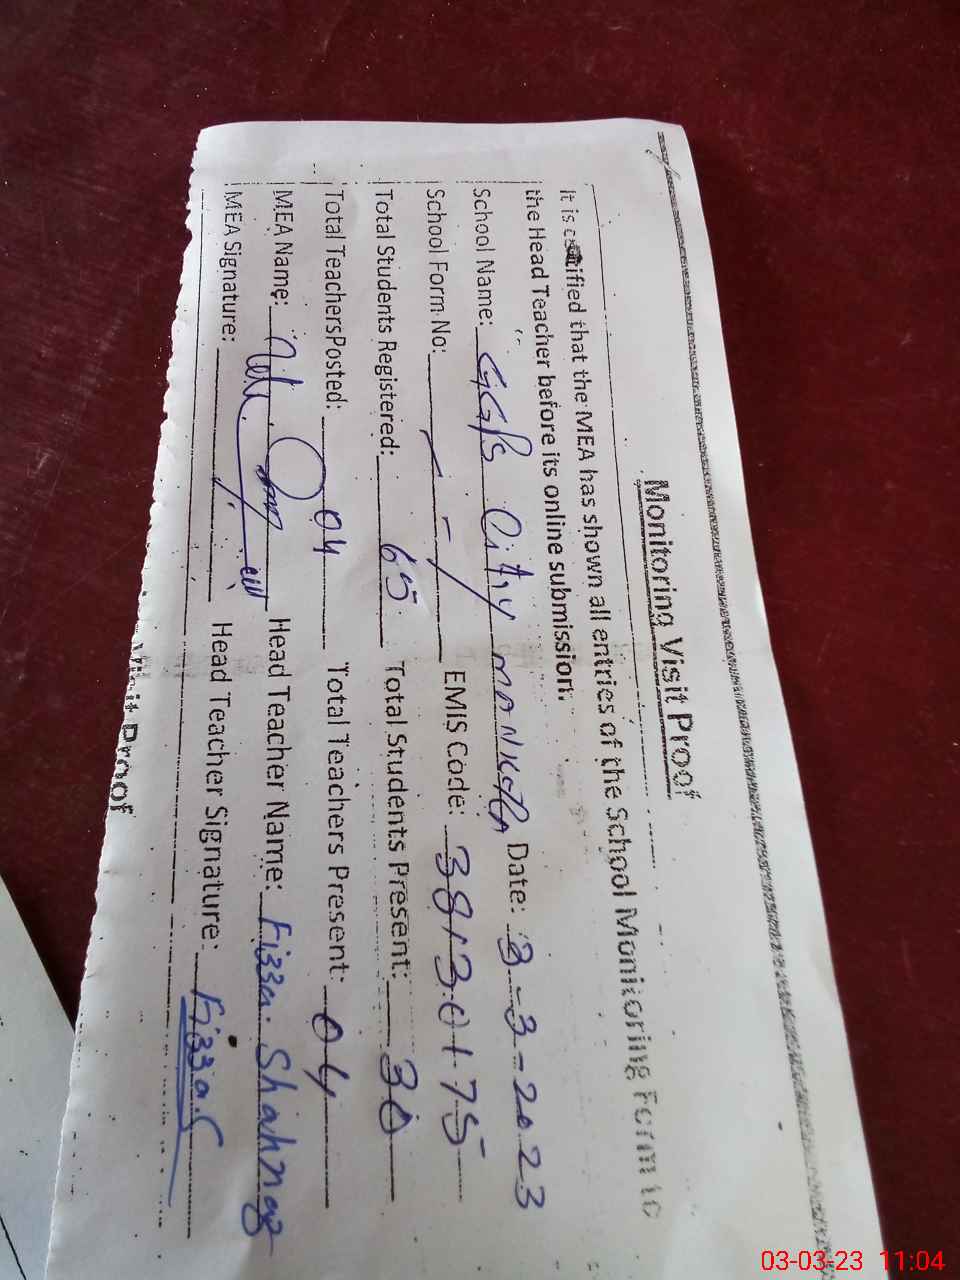 Monitoring Visit Proof
It is certified that the MEA has shown all entries of the School Monitoring Form to
the Head Teacher before its online submission.
School Name: GGPS City MANKERA Date: 3-3-2023
School Form No: EMIS Code: 38130175
Total Students Registered: 65 Total Students Present: 30
Total TeachersPosted: 04 Total Teachers Present: 04
MEA Name: Head Teacher Name: Fizza Shahnaz
MEA Signature: Head Teacher Signature: Fizza.S
Visit Proof
03-03-23 11:04